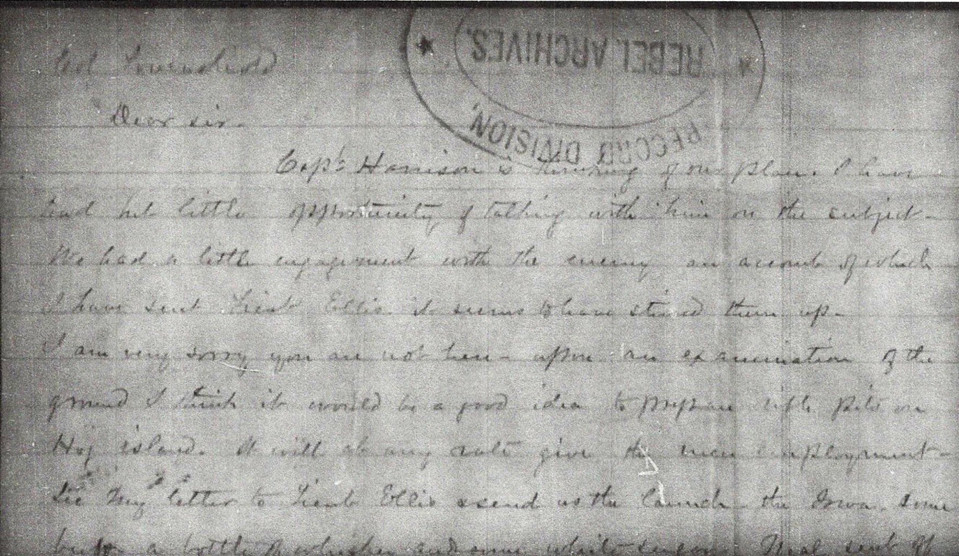 REBEL ARCHIVES.
RECORD DIVISION,
Col
Dear sir.
Capt. Harrison is thinking of our plan. I have
had but little opportunity of talking with him on the subject-
We had a little engagement with the enemy an account of which
I have sent Lieut Ellis it seems to have stirred them up-
I am very sorry you are not here- upon an examination of the
ground I think it would be a good idea to prepare rifle pits on
Hog island. It will at any rate give the men employment-
See my letter to Lieut Ellis & send us the launch- the Iowa. some
a bottle of whiskey and some white sugar.